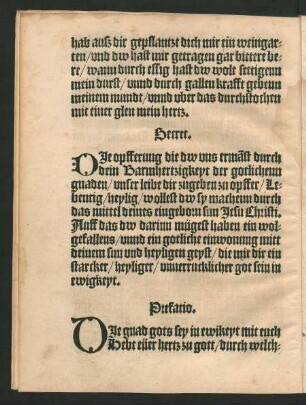 hab auß dir gepflantzt dich mir ein weingar-
ten/ vnd dw hast mir getragen gar bittere be-
re/ wann durch essig hast dw wolt settigenn
mein durst/ vnnd durch gallen krafft gebenn
meinem munde/ vnnd vber das durchstochen
mit einer glen mein hertz.
Secret.
DJe opfferung die dw vns ermãst durch
dein Barmhertzigkeyt der gotlichenn
gnaden/ vnser leibe dir zugeben zu opffer/ Le-
bentig/ heylig/ wollest dw sy machenn durch
das mittel deines eingeborn sun Jesu Christi.
Auff das dw darinn mügest haben ein wol-
gefallens/ vnnd ein gotliche einwonung mitt
deinem sun vnd heyligen geyst/ die mit dir ein
starcker/ heyliger/ vnuerrücklicher got sein in
ewigkeyt.
Prefatio.
DJe gnad gots sey in ewikeyt mit euch
Hebt eüer hertz zu gott/ durch welch-